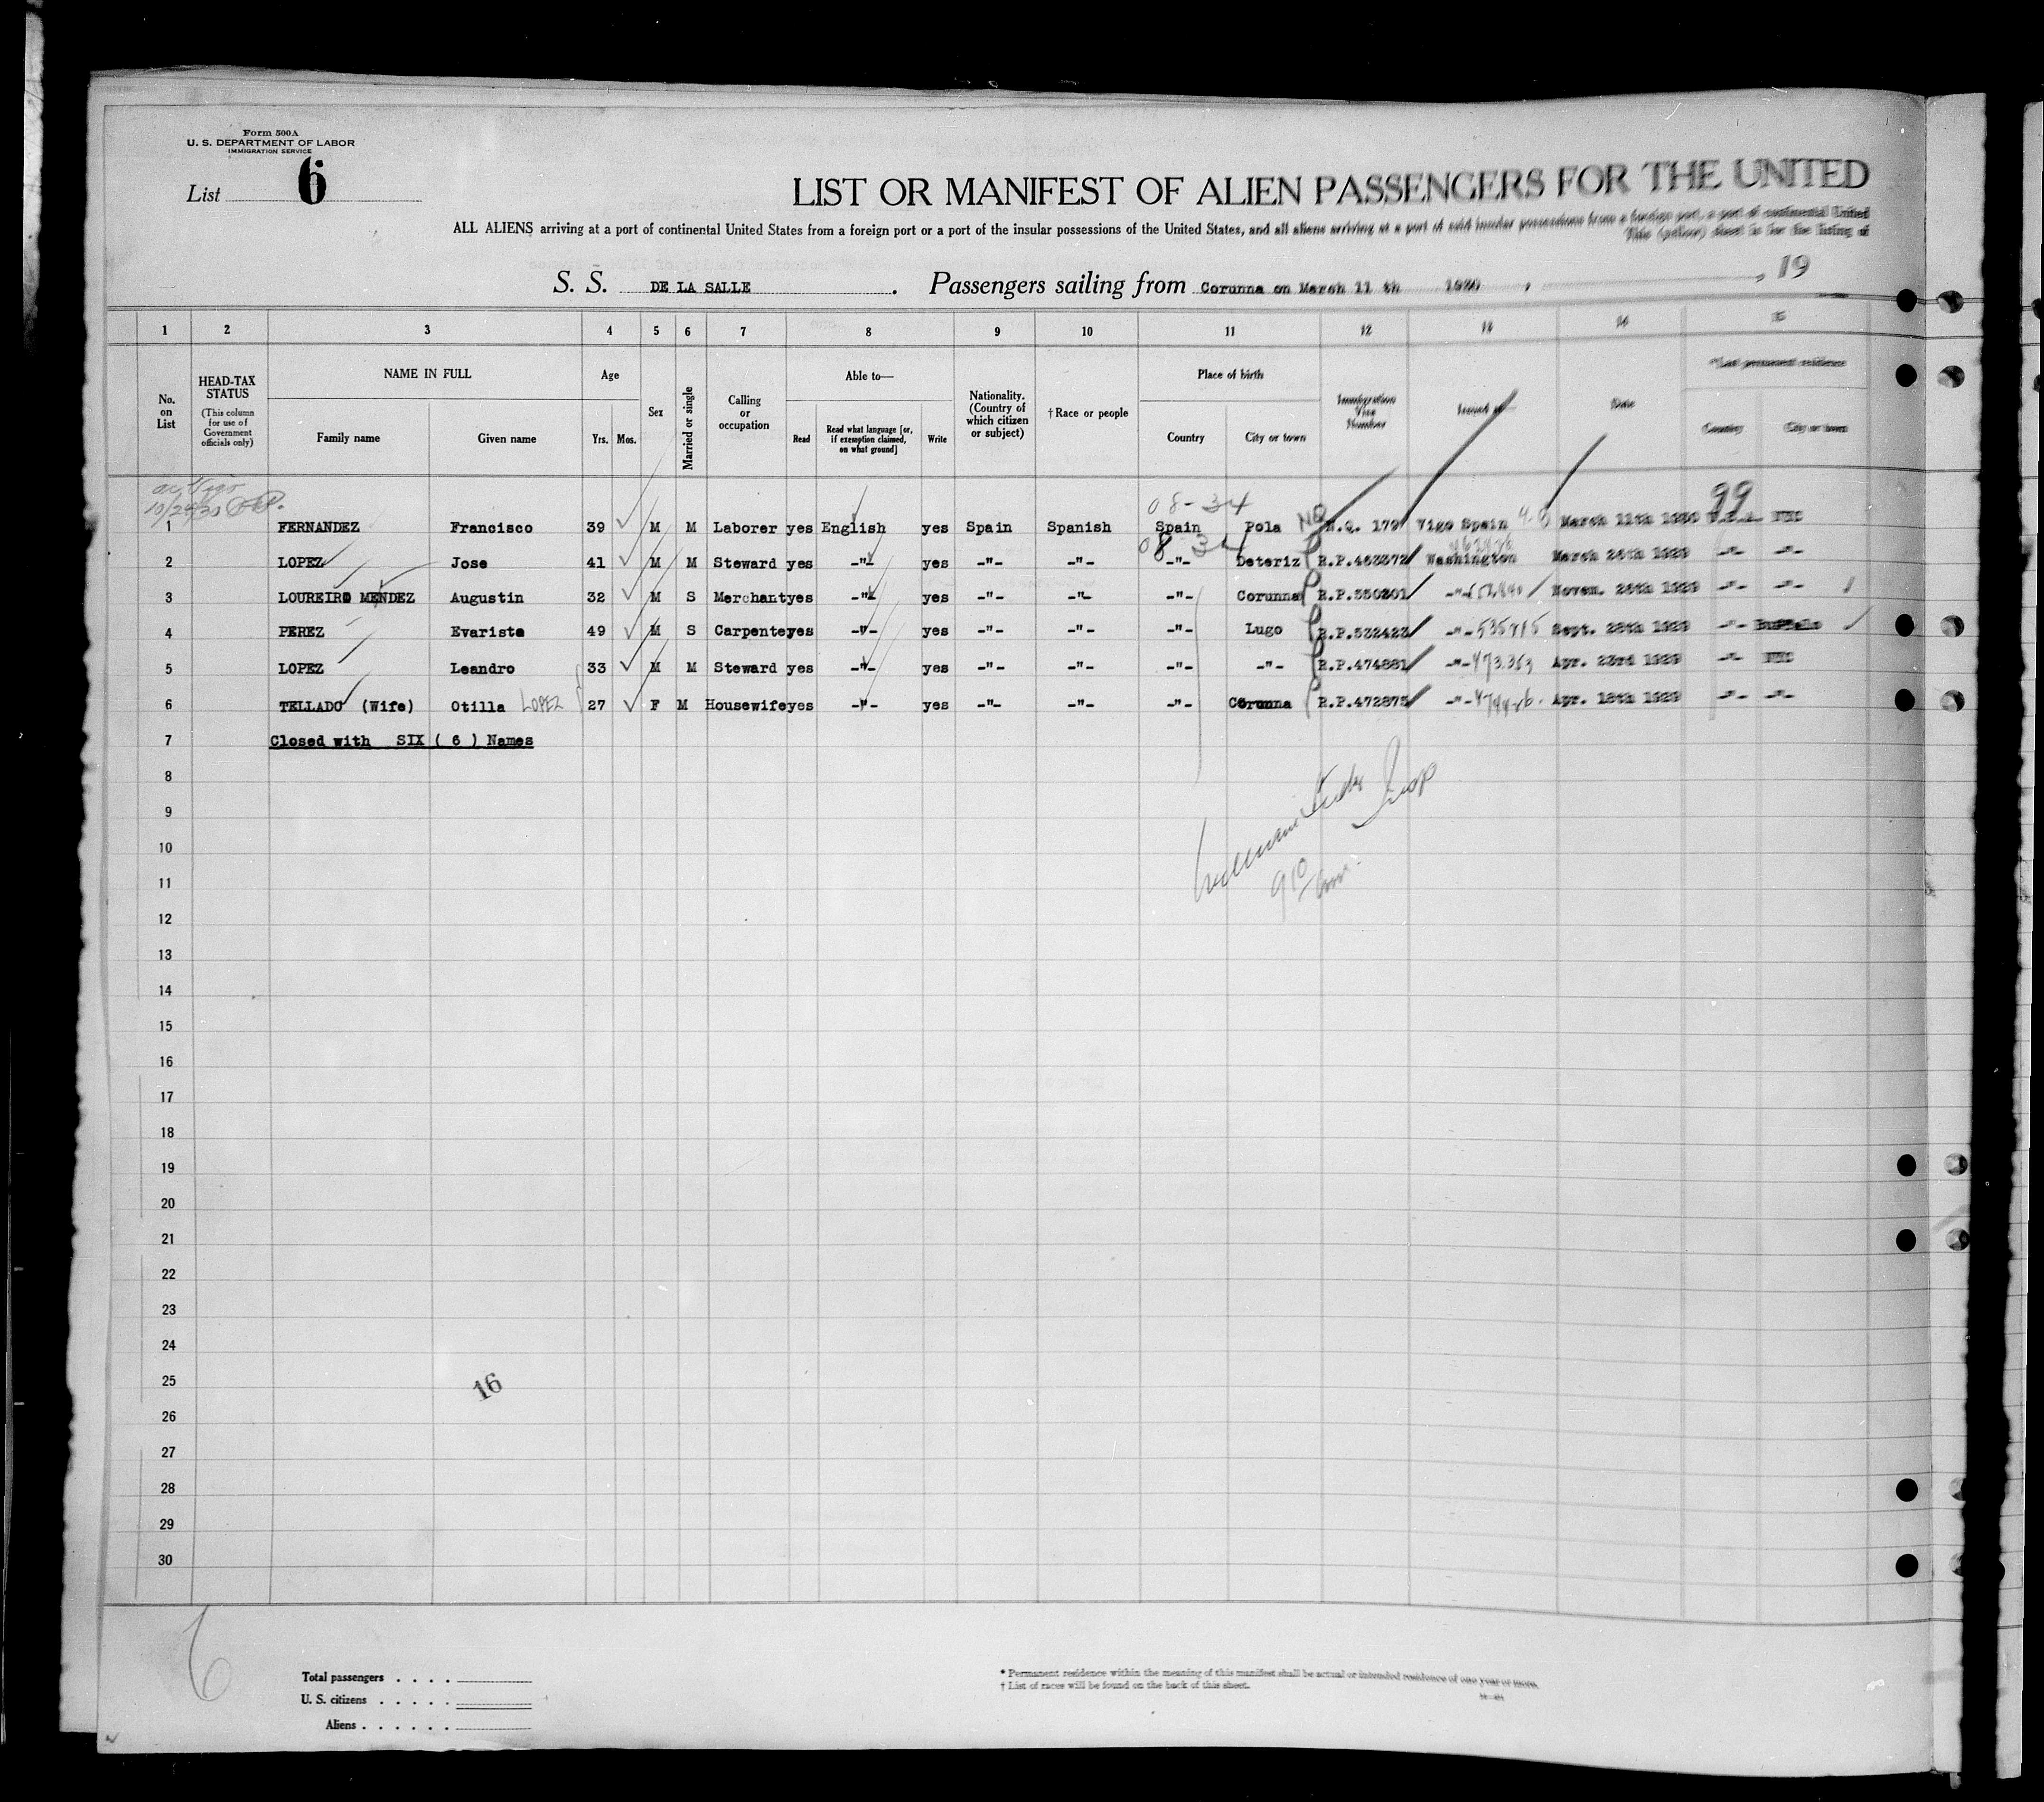 Form 500A
U. S. DEPARTMENT OF LABOR
IMMIGRATION SERVICE
List 6
LIST OR MANIFEST OF ALIEN PASSENGERS FOR THE UNITED
ALL ALIENS arriving at a port of continental United States from a foreign port or a port of the insular possessions of the United States, and all aliens arriving at a port of said insular possessions from a foreign port, a port of continental United
This (yellow) sheet is for the listing of
S. S. DE LA SALLE . Passengers sailing from Corunna on March 11 th 1930 , , 19
1 2 3 4 5 6 7 8 9 10 11 12 13 14 15
No. on List
HEAD-TAX STATUS (This column for use of Government officials only)
NAME IN FULL
Family name Given name
Age
Yrs. Mos.
Sex
Married or single
Calling or occupation
Able to—
Read Read what language [or, if exemption claimed, on what ground] Write
Nationality. (Country of which citizen or subject)
†Race or people
Place of birth
Country City or town
Immigration Visa Number
Issued at—
Date
*Last permanent residence
Country City or town
10/24/30
08-34 99
1 FERNANDEZ Francisco 39 M M Laborer yes English yes Spain Spanish Spain Pola NQ N.Q. 179 Vigo Spain March 11th 1930 U.S.A. NYC
08 34
2 LOPEZ Jose 41 M M Steward yes -"- yes -"- -"- -"- Deteriz R.P.463372 Washington March 26th 1929 -"- -"-
3 LOUREIRO MENDEZ Augustin 32 M S Merchant yes -"- yes -"- -"- -"- Corunna R.P.550301 -"- Novem. 26th 1929 -"- -"-
4 PEREZ Evariste 49 M S Carpente yes -"- yes -"- -"- -"- Lugo R.P.532423 -"- 535915 Sept. 28th 1929 -"- Buffalo
5 LOPEZ Leandro 33 M M Steward yes -"- yes -"- -"- -"- -"- R.P.474881 -"- 473.363 Apr. 23rd 1929 -"- NYC
6 TELLADO (Wife) Otilla LOPEZ 27 F M Housewife yes -"- yes -"- -"- -"- Corunna R.P.472875 -"- Apr. 18th 1929 -"- -"-
7 Closed with SIX ( 6 ) Names
8
9
10
11
12
13
14
15
16
17
18
19
20
21
22
23
24
25
16
26
27
28
29
30
6
Total passengers . . . .
U. S. citizens . . . . .
Aliens . . . . . .
* Permanent residence within the meaning of this manifest shall be actual or intended residence of one year or more.
† List of races will be found on the back of this sheet.